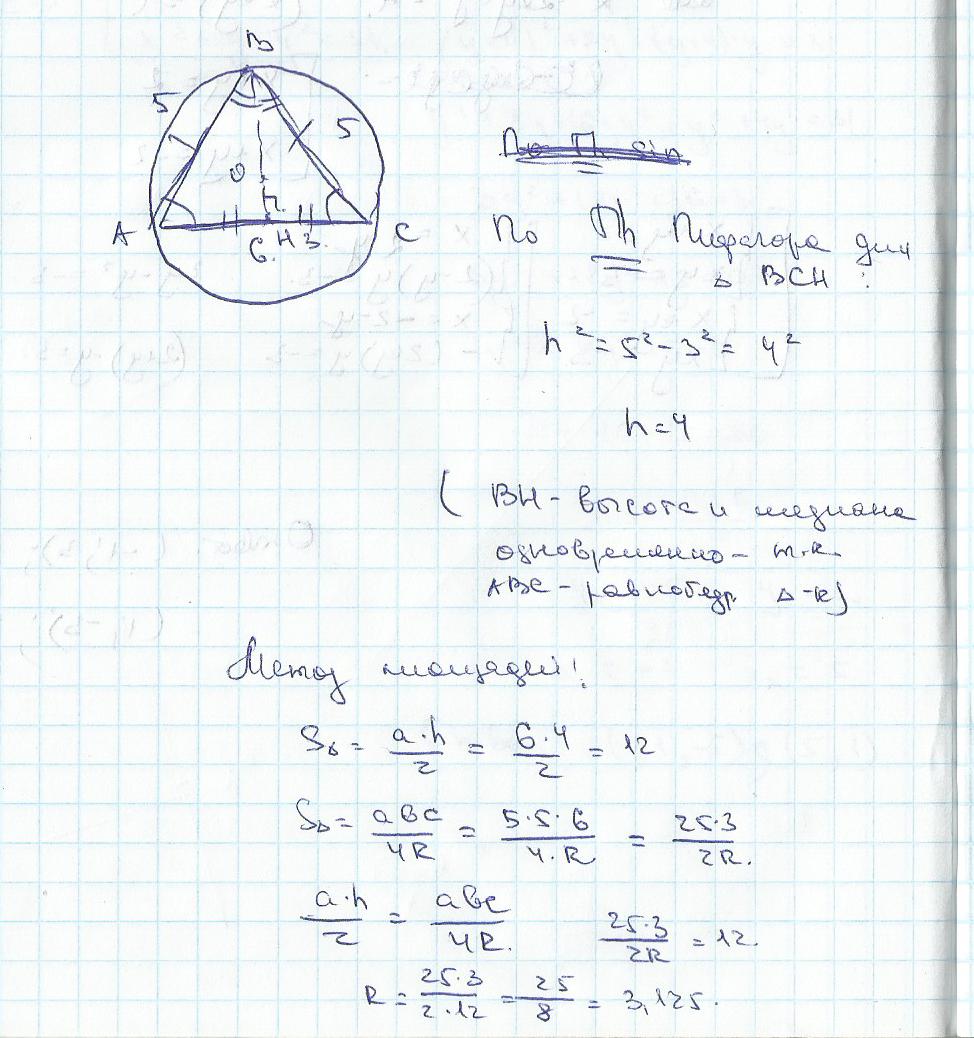 B
5
5
O
A
6.
H
3.
C
По Th sin
По Th Пифагора для
Δ BCH :
h² = 5² - 3² = 4²
h = 4
( BH - высота и медиана
одновременно - т.к.
ABC - равнобедр. Δ-к)
Метод площадей!
S△ = a·h/2 = 6·4/2 = 12
S△ = abc/4R = 5·5·6/4·R = 25·3/2R.
a·h/2 = abc/4R. 25·3/2R = 12.
R = 25·3/2·12 = 25/8 = 3,125.